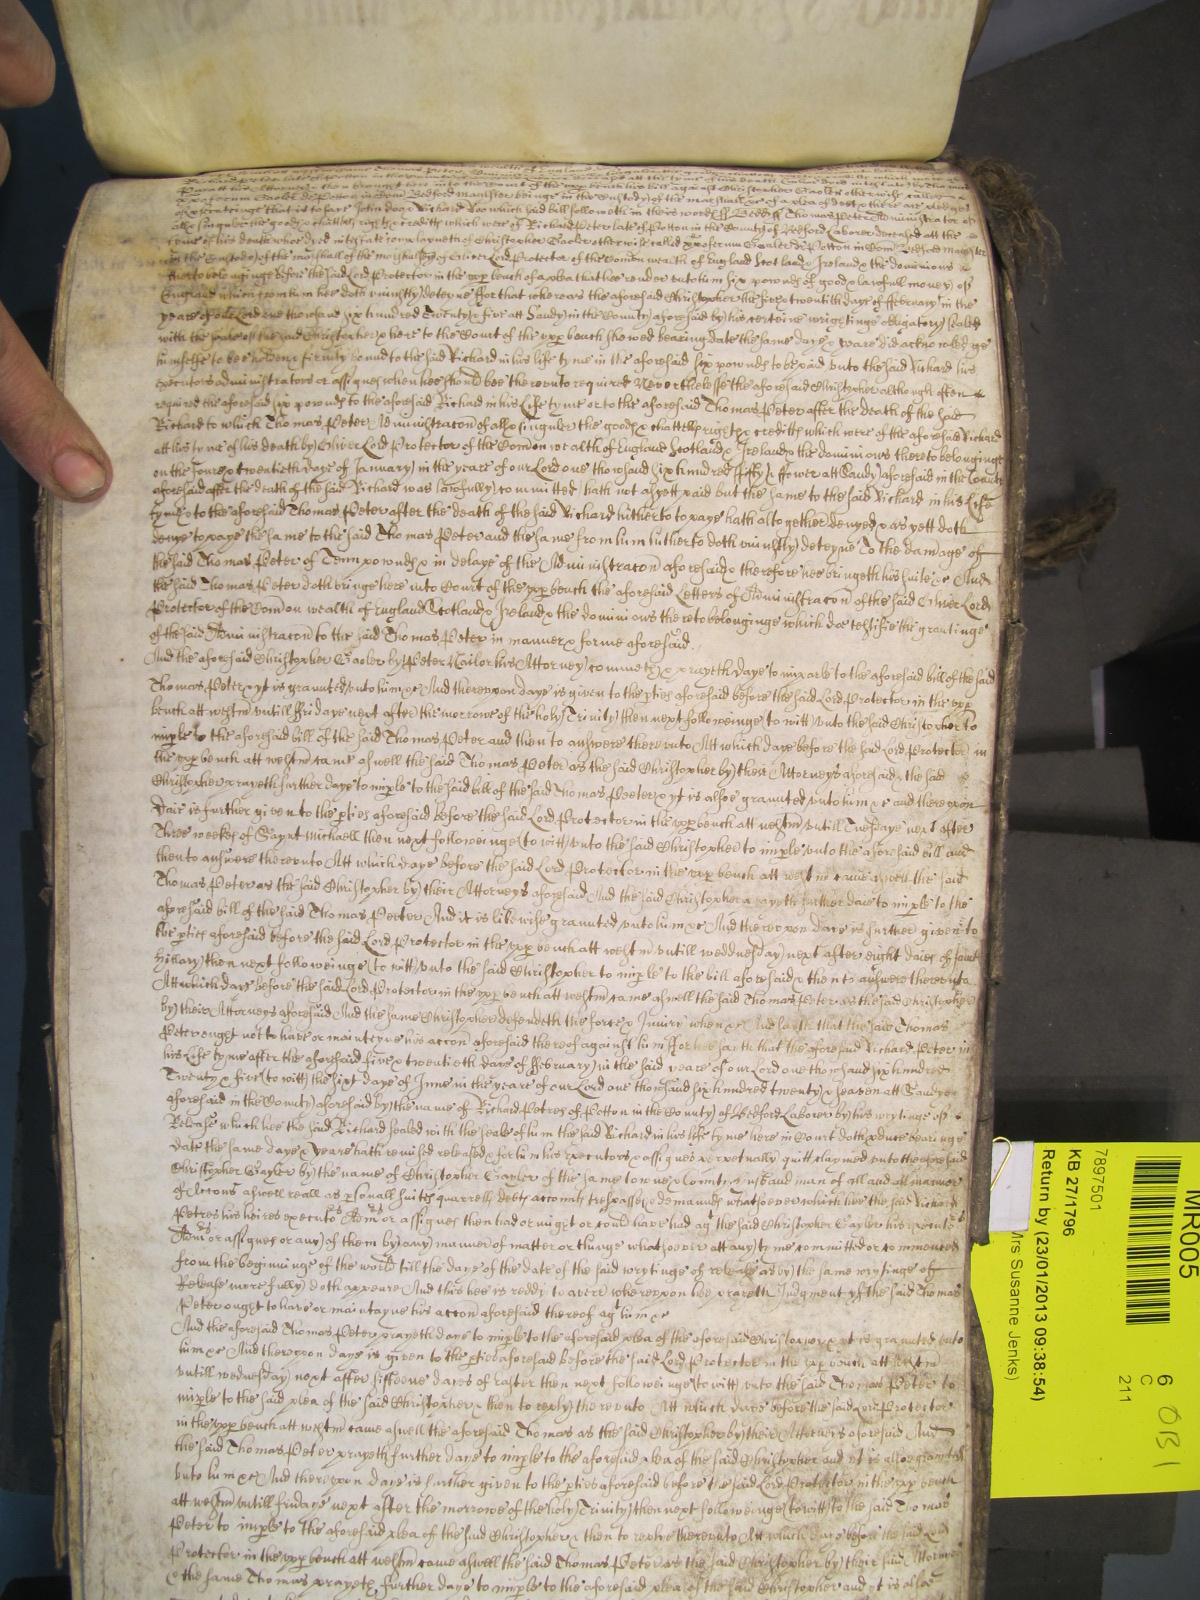 of his death who dyed intestate complayneth of Christopher Gaoler otherwise called
in the Custody of the marshall of the marshalsey of Oliver Lord Protector of the Common wealth of England Scotland & Ireland & the dominions
thereto belonginge before the said Lord Protector in the upp bench of a plea that hee render unto him six pownds of good & lawfull money of
England which from him hee doth uniustly deteyne ffor that whereas the aforesaid Christopher the five & twentith daye of ffebruary in the
yeare of our Lord one thowsand six hundred Twenty & five att Sandy in the County aforesaid by his certeine wrightinge obligatory sealed
with the seale of the said Christopher & here to the Court of the upp bench showed bearing date the same daye & yeare did acknowledge
himselfe to bee holden & firmly bound to the said Richard in his life tyme in the aforesaid six pownds to be paid unto the said Richard his
executors administrators or assignes when hee should bee thereunto required Neverthelesse the aforesaid Christopher although often
required the aforesaid six pownds to the aforesaid Richard in his Life tyme or to the aforesaid Thomas Peter after the death of the said
Richard to which Thomas Peter Administracon of all & singuler the goods & chattells rights & creditts which were of the aforesaid Richard
att his tyme of his death by Oliver Lord Protector of the Common wealth of England Scotland & Ireland & the dominions there to belonginge
on the foure & twentieth daye of January in the yeare of our Lord one thowsand six hundred fifty & ffower att Sandy aforesaid in the County
aforesaid after the death of the said Richard was lawfully committed hath not as yett paid but the same to the said Richard in his Life
tyme & to the aforesaid Thomas Peter after the death of the said Richard hitherto to paye hath altogether denyed & as yett doth
denye to paye the same to the said Thomas Peter and the same from him hitherto doth uniustly deteyne To the damage of
the said Thomas Peter of Tenn pownds & in delaye of the Administracon aforesaid & therefore hee bringeth his suite &c And
the said Thomas Peter doth bringe here into Court of the upp bench the aforesaid Letters of Administracon of the said Oliver Lord
Protector of the Common wealth of England Scotland & Ireland & the dominions thereto belonginge which doe testifie the grantinge
of the said Administracon to the said Thomas Peter in manner & forme aforesaid
And the aforesaid Christopher Gaoler by Peter Nailor his Attorney commeth & prayeth daye to imparle to the aforesaid bill of the said
Thomas Peter & yt is granted unto him &c And thereupon daye is given to the pties aforesaid before the said Lord Protector in the upp
bench att westm untill ffridaye next after the morrowe of the holy Trinity then next followeinge to witt unto the said Christopher to
imple to the aforesaid bill of the said Thomas Peter and then to answere thereunto Att which daye before the said Lord Protector in
the upp bench att westm came aswell the said Thomas Peter as the said Christopher by their Attorneys aforesaid & the said
Christopher prayeth further daye to imple to the said bill of the said Thomas Peeter & yt is alsoe granted unto him &c and thereupon
Daie is further given to the pties aforesaid before the said Lord Protector in the upp bench att westm untill Tuesdaye next after
Three weekes of Saynt Michaell then next followeinge to witt unto the said Christopher to imple unto the aforesaid bill and
then to answere thereunto Att which daye before the said Lord Protector in the upp bench att westm came aswell the said
Thomas Peter as the said Christopher by their Attorneys aforesaid And the said Christopher prayeth further daie to imple to the
aforesaid bill of the said Thomas Peeter And it is likewise granted unto him &c And thereupon Daye is further given to
the pties aforesaid before the said Lord Protector in the upp bench att westm untill weddnesday next after eight daies of saint
Hillary then next followeinge to witt unto the said Christopher to imple to the bill aforesaid & then to answere thereunto
Att which daye before the said Lord Protector in the upp bench att westm came aswell the said Thomas Peter as the said Christopher
by their Attorneys aforesaid And the same Christopher defendeth the force & Iniury when &c And saith that the said Thomas
Peter ought not to have or mainteyne his accon aforesaid thereof against him ffor hee saith that the aforesaid Richard Peter in
his Life tyme after the aforesaid five & twentieth daye of ffebruary in the said yeare of our Lord one thowsand six hundred
Twenty & five to witt the sixt daye of June in the yeare of our Lord one thowsand six hundred twenty & seaven att Sandy
aforesaid in the County aforesaid by the name of Richard Petres of Potton in the County of Bedford Laborer by his wrytinge of
Release which hee the said Richard sealed with the seale of him the said Richard in his life tyme here in Court doth pduce bearinge
date the same daye & yeare hath remised released & for him his executors & assignes ppetually quitt claymed unto the aforesaid
Christopher Gayler by the name of Christopher Gayler of the same towne & County husband man of all and all manner
of Accons aswell reall as psonall suits quarrells debts accompts trespasses & demaunds whatsoever which hee the said Richard
Petres his heires executors Admrs or assignes then had or might or could have had agt the said Christopher Gayler his executors
Admrs or assignes or any of them by any manner of matter or thinge whatsoever att any tyme committed or commenced
from the beginninge of the world till the daye of the date of the said wrytinge of release as by the same wrytinge of
Release more fully doth appeare And this hee is reddy to averr whereupon hee prayeth Judgment yf the said Thomas
Peter ought to have or maintayne his accon aforesaid thereof agt him &c
And the aforesaid Thomas Peter prayeth daye to imple to the aforesaid plea of the aforesaid Christopher & yt is granted unto
him &c And thereupon daye is given to the pties aforesaid before the said Lord Protector in the upp bench att westm
untill wednesday next after fifteene dayes of easter then next followeinge to witt unto the said Thomas Peter to
imple to the said plea of the said Christopher & then to reply thereunto Att which daye before the said Lord Protector
in the upp bench att westm came aswell the aforesaid Thomas as the said Christopher by their Attorneys aforesaid And
the said Thomas Peter prayeth further daye to imple to the aforesaid plea of the said Christopher and it is alsoe granted
unto him &c And thereupon daye is further given to the pties aforesaid before the said Lord Protector in the upp bench
att westm untill fridaye next after the morrowe of the holy Trinity then next followeinge to witt to the said Thomas
Peter to imple to the aforesaid plea of the said Christopher & then to replie thereunto Att which daye before the said Lord
Protector in the upp bench att westm came aswell the said Thomas Peter as the said Christopher by their said Attorneys
& the same Thomas prayeth further daye to imple to the aforesaid plea of the said Christopher and yt is alsoe
MR005
6
C
211
OB1
7897501
KB 27/1796
Return by (23/01/2013 09:38:54)
Mrs Susanne Jenks)